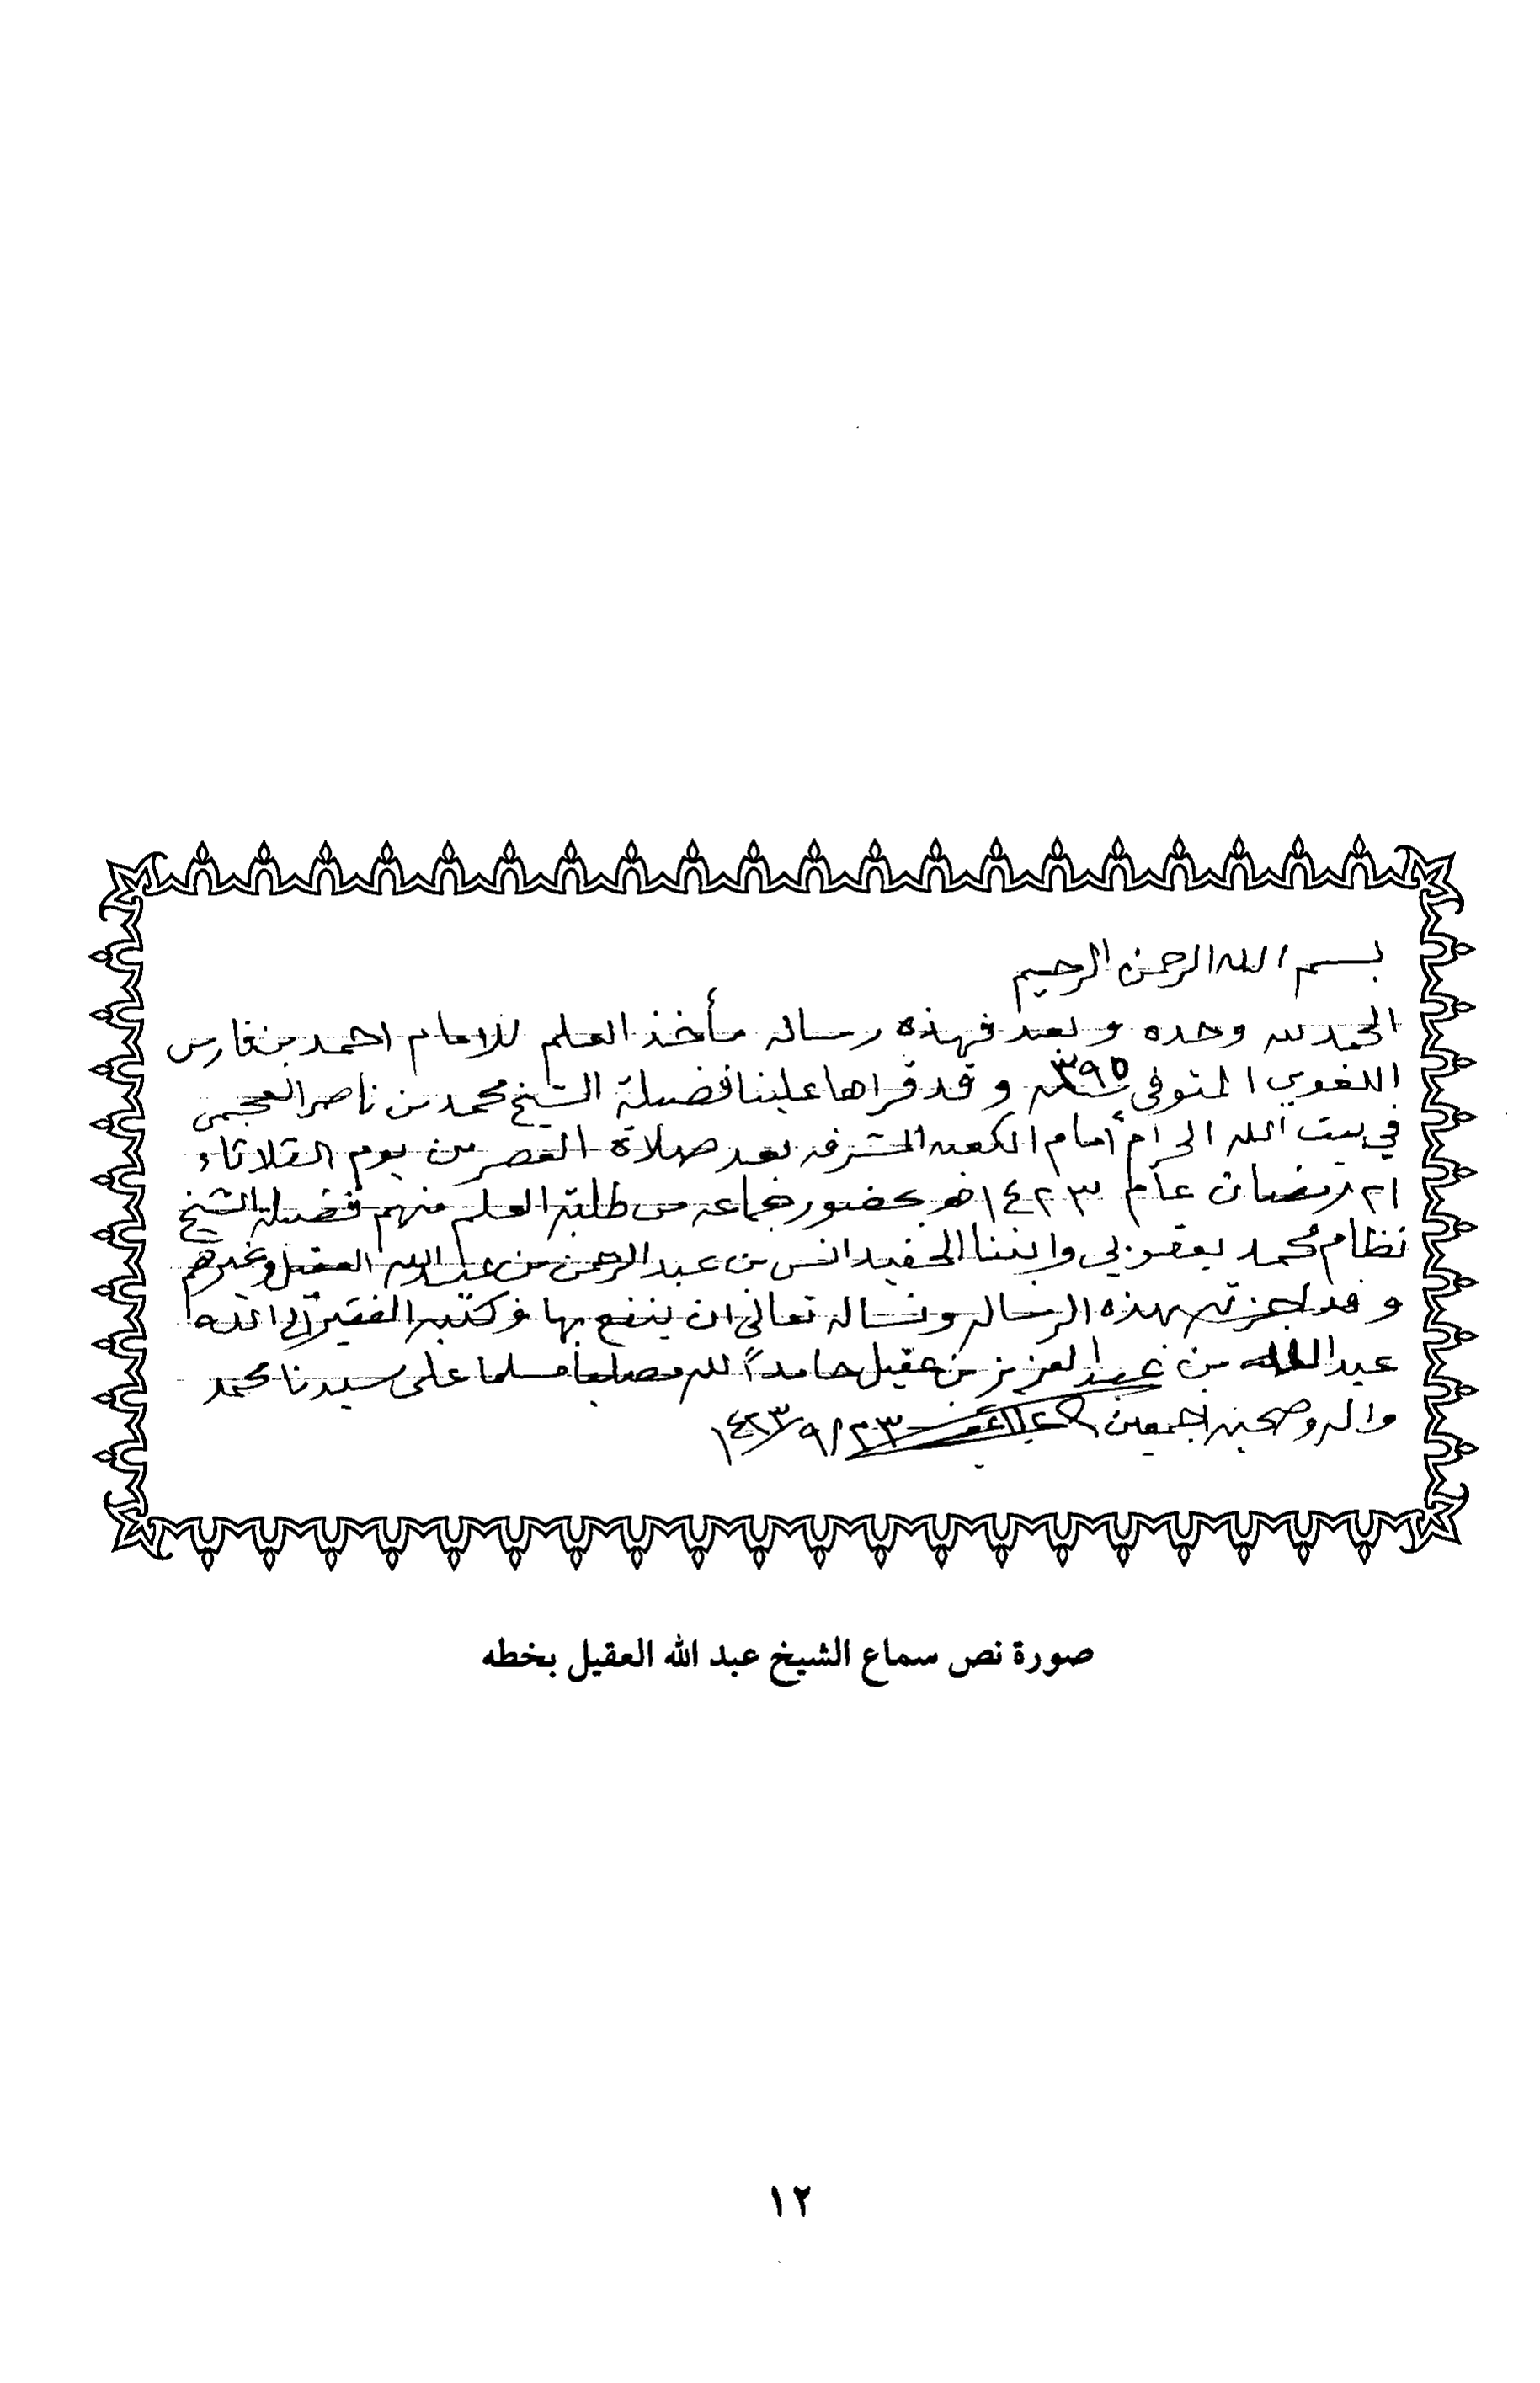 بسم الله الرحمن الرحيم
الحمد لله وحده وبعد فهذه رساله مأخذ العلم للامام احمد بن فارس
اللغوي المتوفى سنة ٣٩٥ وقد قراها علينا فضيلة الشيخ محمد بن ناصر العجمي
في بيت الله الحرام أمام الكعبه المشرفه بعد صلاة العصر من يوم الثلاثاء
٢١ رمضان عام ١٤٢٣هـ بحضور جماعه من طلبة العلم منهم فضيلة الشيخ
نظام محمد يعقوبي وابننا الحفيد انس بن عبد الرحمن بن عبد الله العقيل وغيرهم
وقد اجزته بهذه الرساله ونساله تعالى ان ينفع بها وكتبه الفقير الى الله
عبد الله بن عبد العزيز بن عقيل حامداً لله مصليا مسلما على سيدنا محمد
واله وصحبه اجمعين ١٤٢٣/٩/٢٣
صورة نص سماع الشيخ عبد الله العقيل بخطه
١٢